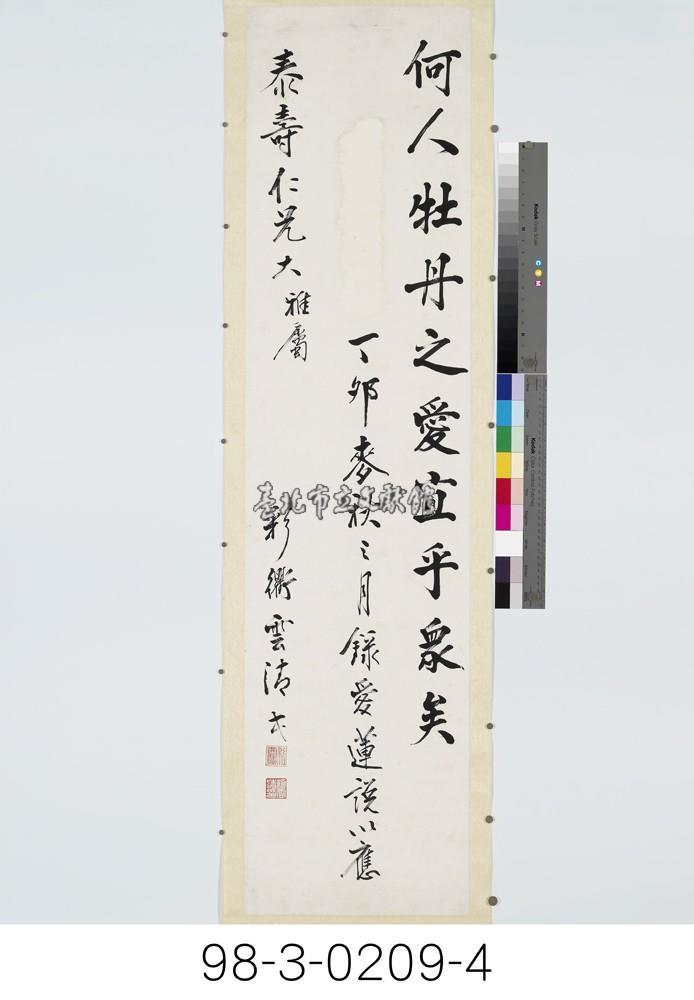 何人牡丹之愛宜乎眾矣
丁卯麥秋之月錄愛蓮說以應
泰壽仁兄大雅屬
彩衢雲清氏
臺北市立文獻館
98-3-0209-4